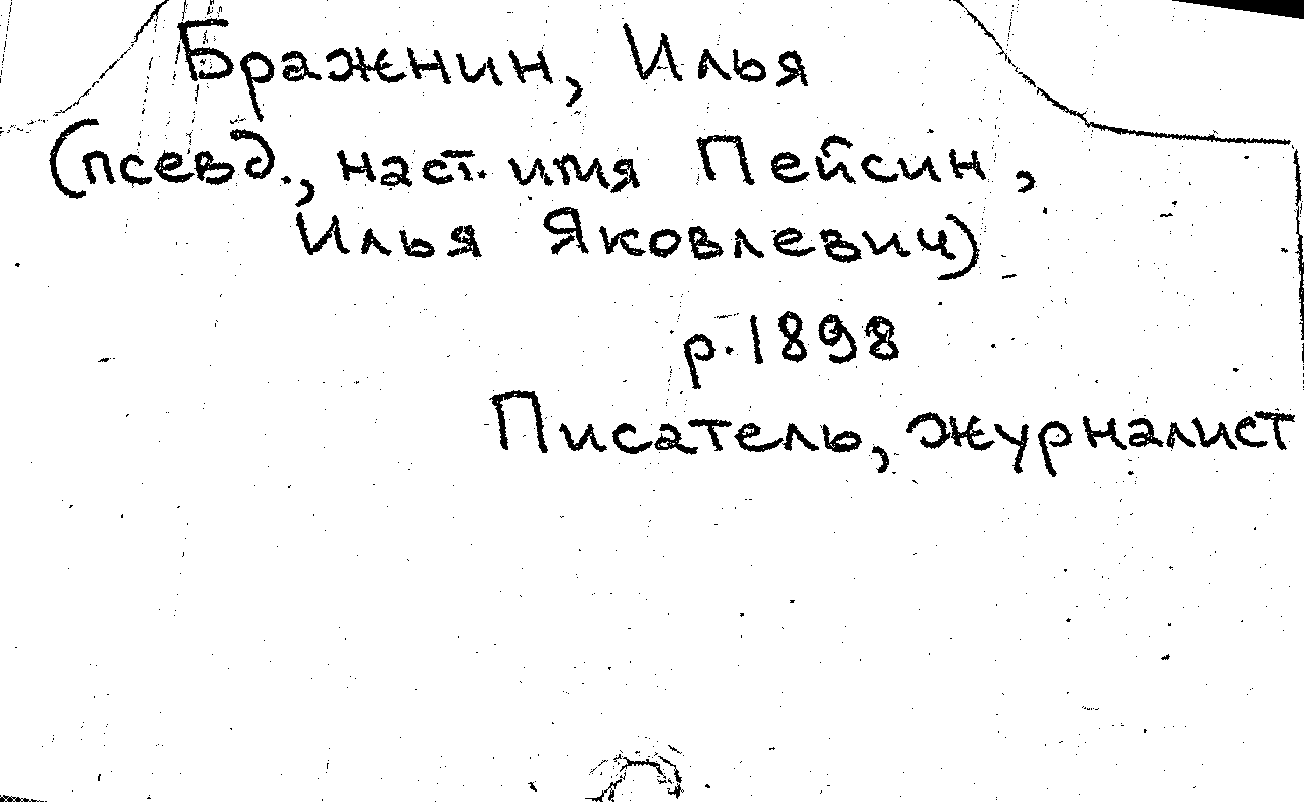 Бражнин, Илья
(псевд., наст. имя Пейсин,
Илья Яковлевич)
р. 1898
Писатель, журналист